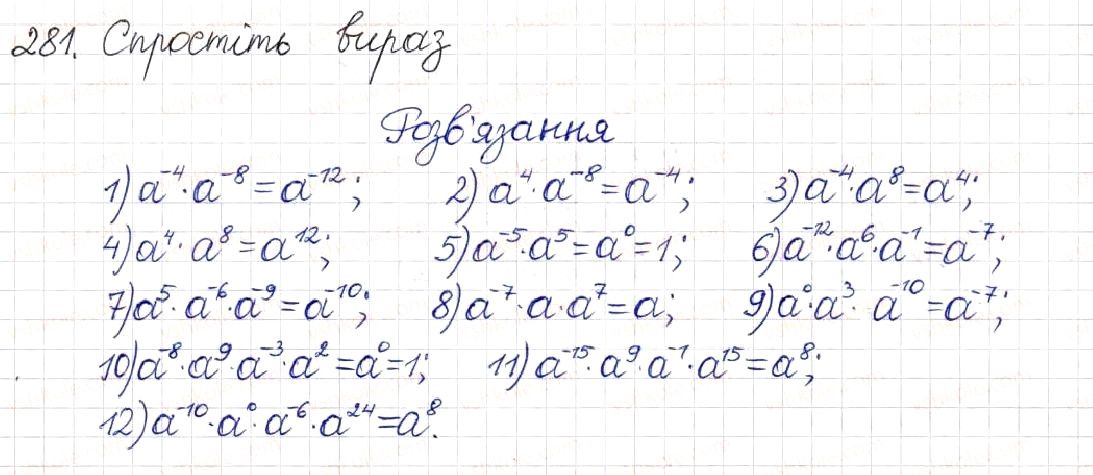 281. Спростіть вираз
Розв'язання
1) a⁻⁴·a⁻⁸=a⁻¹²; 2) a⁴·a⁻⁸=a⁻⁴; 3) a⁻⁴·a⁸=a⁴;
4) a⁴·a⁸=a¹²; 5) a⁻⁵·a⁵=a⁰=1; 6) a⁻¹²·a⁶·a⁻¹=a⁻⁷;
7) a⁵·a⁻⁶·a⁻⁹=a⁻¹⁰; 8) a⁻⁷·a·a⁷=a; 9) a⁰·a³·a⁻¹⁰=a⁻⁷;
10) a⁻⁸·a⁹·a⁻³·a²=a⁰=1; 11) a⁻¹⁵·a⁹·a⁻¹·a¹⁵=a⁸;
12) a⁻¹⁰·a⁰·a⁻⁶·a²⁴=a⁸.